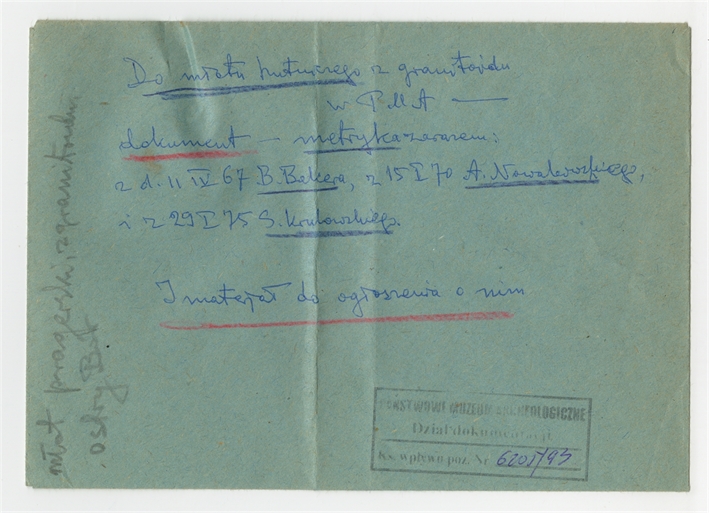 Do młota hutniczego z granitoidu
w PMA —
dokument — metryka zarazem:
z d. 11 IV 67 B. Balcera, z 15 I 70 A. Nowakowskiego,
i z 29 I 75 S. Krukowskiego.
I materjał do ogłoszenia o nim
młot z granitoidu
ostry
PAŃSTWOWE MUZEUM ARCHEOLOGICZNE
Dział dokumentacji
Ks. wpływu poz. Nr 6205/93